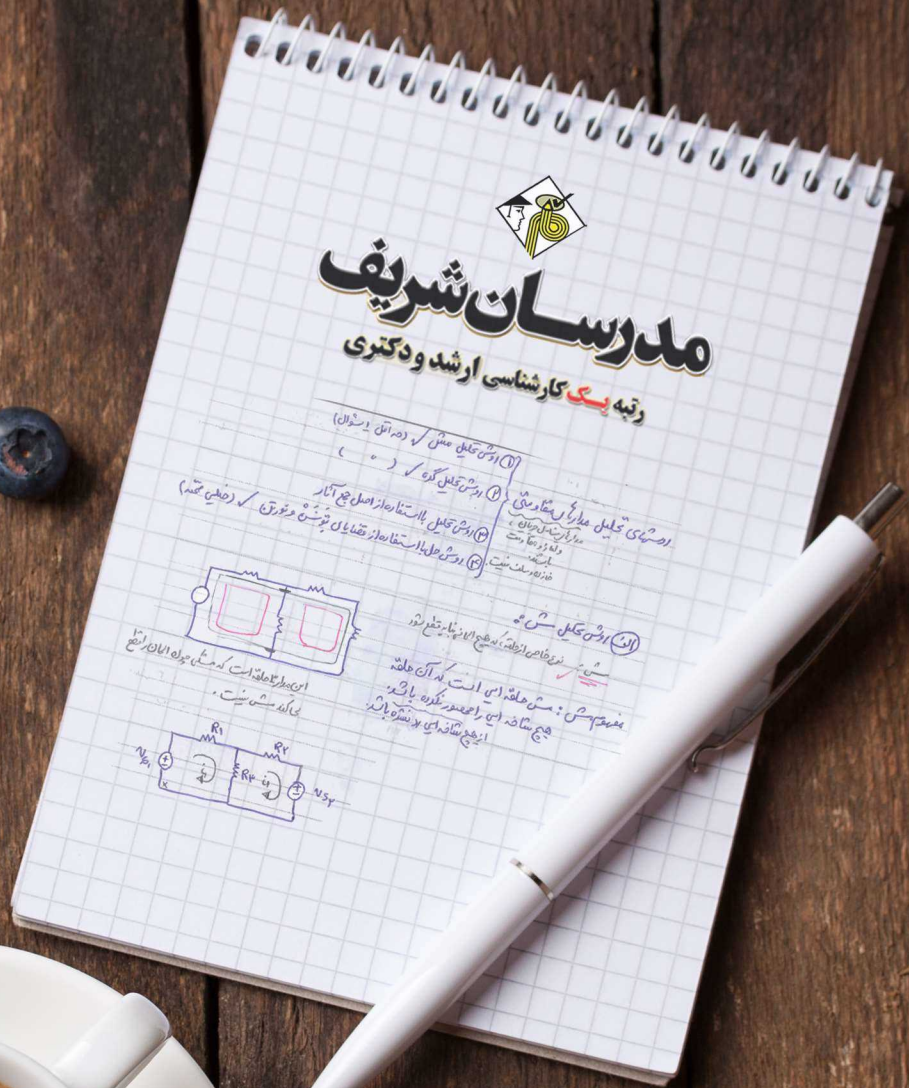 مدرسان شریف
رتبه یک کارشناسی ارشد و دکتری
روشهای تحلیل مدارهای مقاومتی
① روش تحلیل مش ✓ (حداقل ۱ سوال)
② روش تحلیل گره ✓ ( " )
③ روش تحلیل با استفاده از اصل جمع آثار
④ روش حل با استفاده از قضایای تونن و نورتن ✓ (خیلی مهمه)
الف) روش تحلیل مش:
مش: نوع خاصی از حلقه که هیچ المانی نباید قطع شود
مفهوم مش: مش حلقه ایی است که آن حلقه
هیچ شاخه ایی را محصور نکرده باشد.
از هیچ شاخه ایی رد نشده باشد.
این مدار ۲ حلقه است که
مش نیست.
R1
R2
R3
i1
i2
Vs1
Vs2